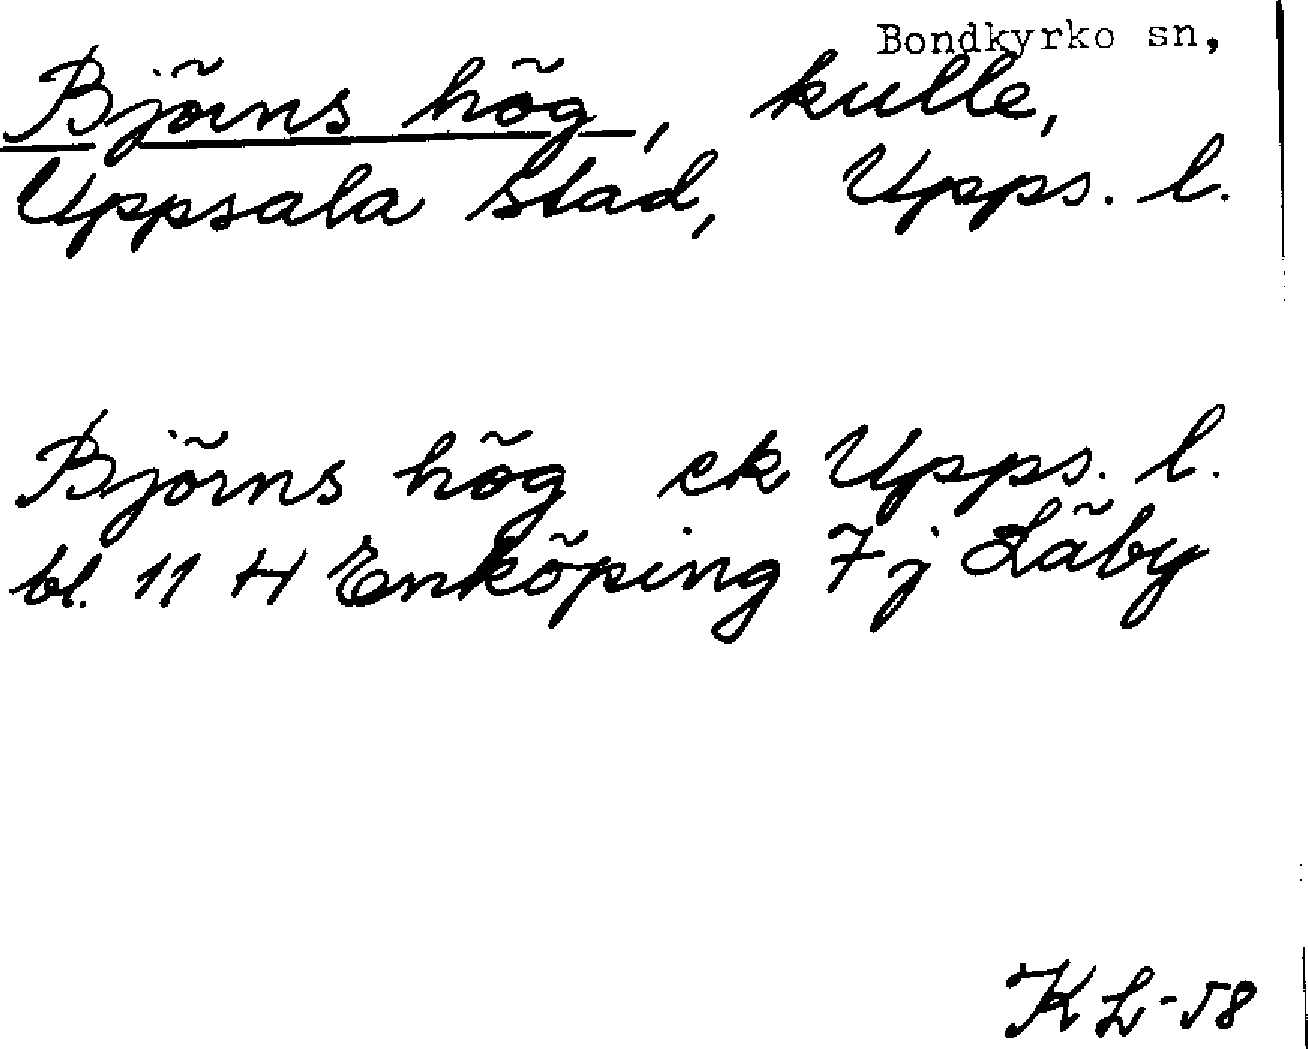 Bondkyrko sn,
Björns hög, kulle,
Uppsala stad, Upps. l.
Björns hög ek Upps. l.
bl. 11 H Enköping 7 j Läby
KL-58